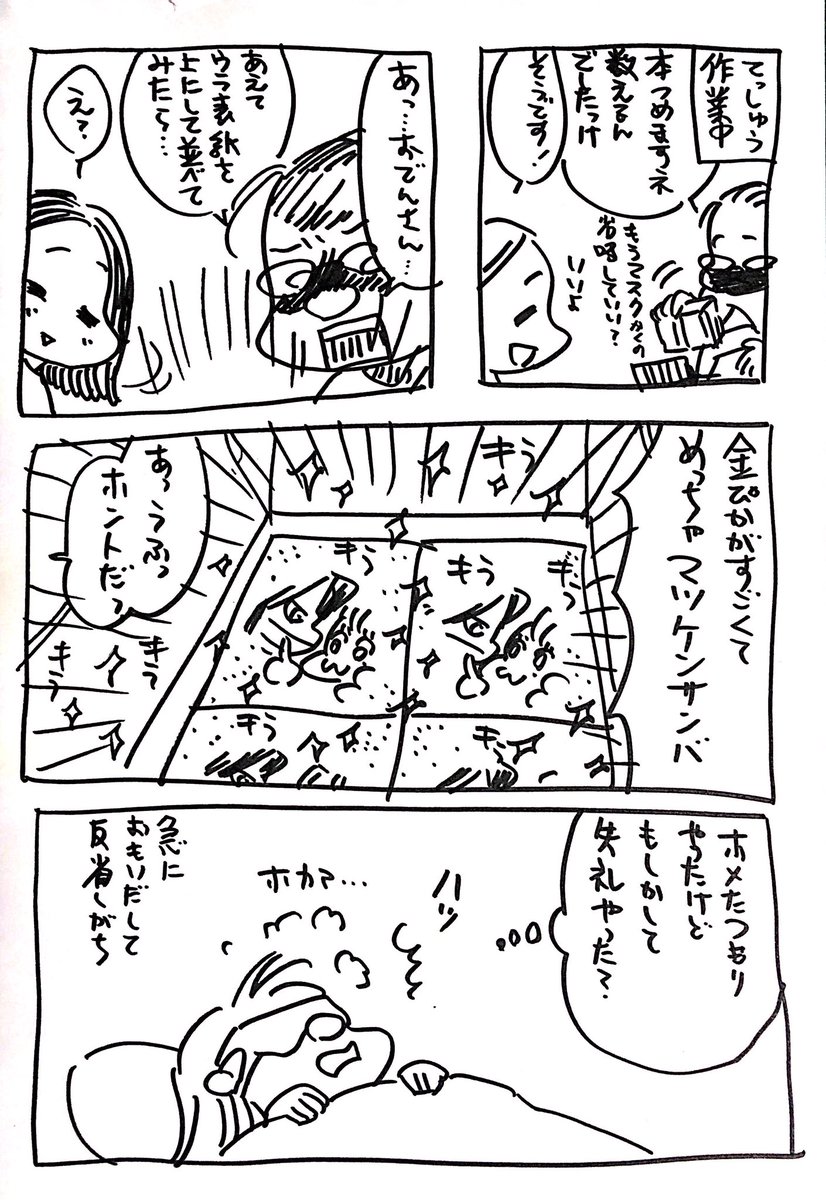 てっしゅう
作業中
本つめますネ
数えるん
でしたっけ
そうです!
もうマスクかくの
省略していい?
いいよ
あっ…おでんさん…
あえて
ウラ表紙を
上にして並べて
みたら…
え?
金ぴかがすごくて
めっちゃマツケンサンバ
キラ
キラ
キラ
キラ
キラ
キラ
キラ
キラ
あっうふっ
ホントだっ
ホメたつもり
やったけど
もしかして
失礼やった?
ハッ
ホカァ…
急に
おもいだして
反省しがち